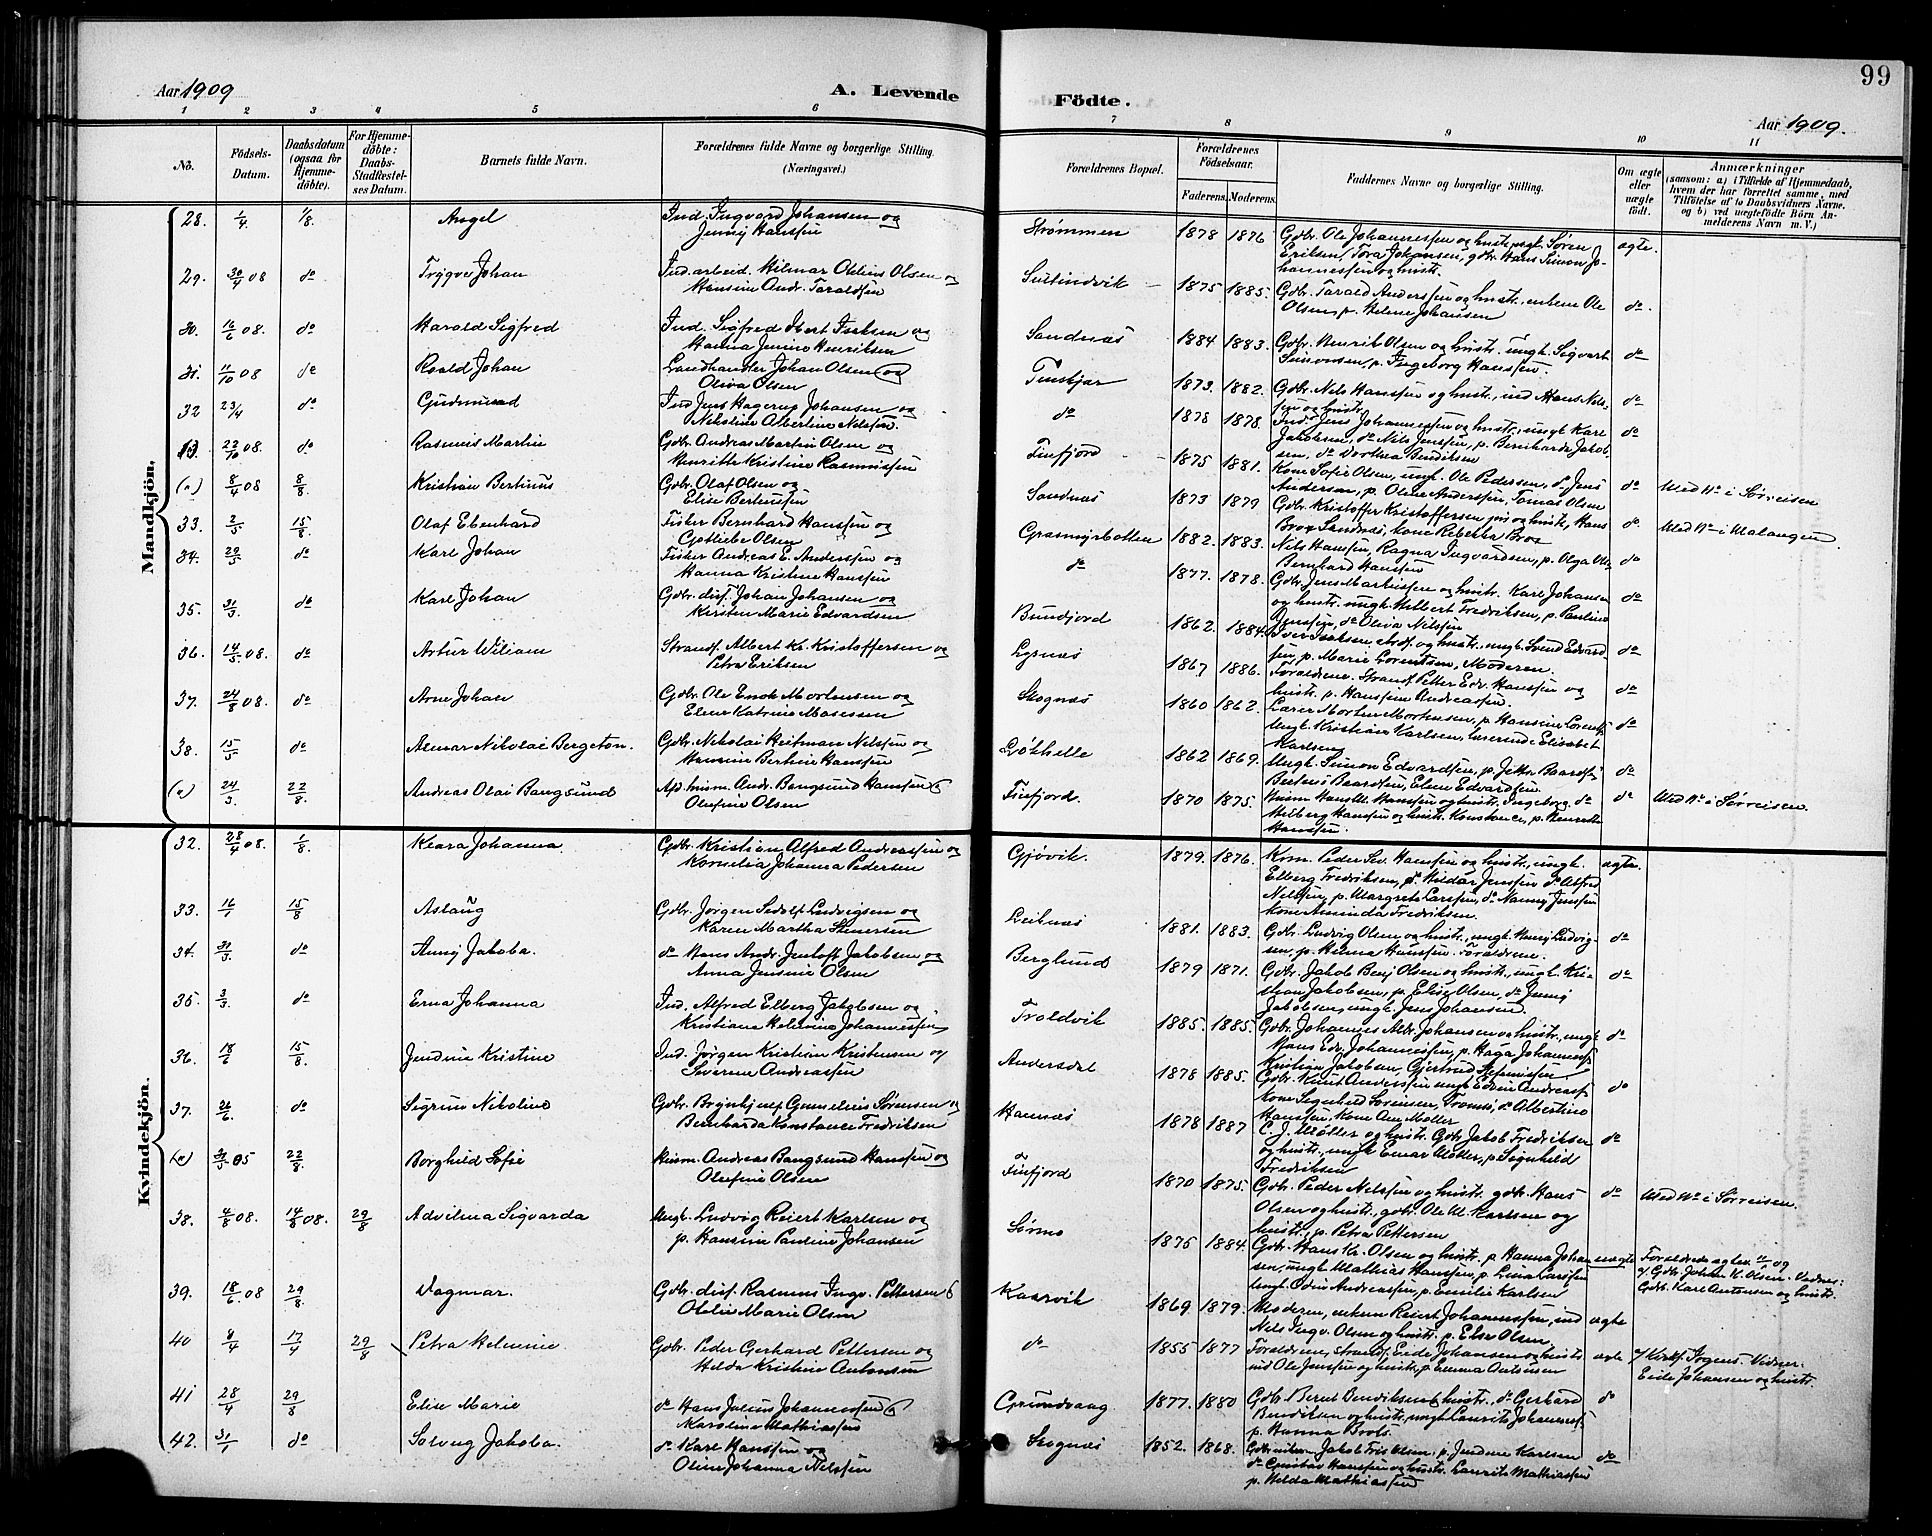 99
Aar 1909
A. Levende
Födte.
Aar 1909.
1 2 3 4 5 6 7 8 9 10 11
No.
Födsels-Datum.
Daabsdatum (ogsaa for Hjemmedöbte).
For Hjemmedöbte: Daabs-Stadfæstelses Datum.
Barnets fulde Navn.
Forældrenes fulde Navne og borgerlige Stilling. (Næringsvei.)
Forældrenes Bopæl.
Forældrenes Födselsaar.
Faderens. Moderens.
Faddernes Navne og borgerlige Stilling.
Om ægte eller uægte födt.
Anmærkninger
(saasom: a) i Tilfælde af Hjemmedaab, hvem der har forrettet samme, med Tilföielse af to Daabsvidners Navne, og b) ved uægtefödte Börn Anmelderens Navn m. V.)
Mandkjön.
28. 1/4 1/8 Angel Ind. Ingvard Johansen og Jenny Hanssen Strømmen 1878 1876 Gdbr. Ole Johannessen og hustr. ungk. Søren Eriksen, Tora Johansen, gdbr. Hans Simon Johannessen og hustr. ægte.
29. 30/4 08 do Trygve Johan Ind. arbeid. Hilmar Otelius Olsen og Hansine Andr. Taraldsen 1875 1885. Gdbr. Tarald Anderssen og hustr., enkem Ole Olsen, p. Helene Johansen do.
30. 16/6 08. do Harald Sigfred Ind. Sigfred Ibert Isaksen og Hanna Jenine Henriksen Sandnæs 1884 1883. Gdbr. Henrik Olsen og hustr. ungk. Sigvart Simonsen, p. Ingeborg Hanssen. do
31. 11/10 08 do Roald Johan Landhandler Johan Olsen og Oliva Olsen 1873. 1882. Gdbr. Nils Hanssen og hustr., ind Hans Nilssen og hustr. do
32 23/4 do Gudmund Ind. Jens Hagerup Johansen og Nikoline Albertine Nilssen. do 1878 1878. Ind. Jens Johannessen og hustr., ungk. Karl Jakobsen, do Nils Jenssen, p. Bernharda Jakobsen, do Dorthea Bendiksen do
22/10 08. do Rasmus Martin Gdbr. Andreas Martin Olsen og Henritte Kristine Rasmussen Finfjord 1875 1881. Kone Sofie Olsen, ungk. Ole Pedersen, do Jens Andersen, p. Oline Anderssen, Tomas Olsen do Med No i Sørreisen
(a) 8/4 08 8/8. Kristian Bertinus Gdbr. Olaf Olsen og Elise Bertinssen Sandnæs 1873 1879 Gdbr. Kristoffer Kristoffersen og hustr., Hans Brox Sandnæs, kone Rebekka Brox do. Med No i Malangen.
33. 2/5 15/8. Olaf Ebenhard Fisker Bernhard Hanssen og Gotliebe Olsen Græsmyrbotten 1882. 1883. Nils Hanssen, Ragna Ingvardsen, p. Olga Bernhard Hanssen do
34. 29/5 do Karl Johan Fisker Andreas E. Anderssen og Hanna Kristine Hanssen do 1877. 1878. Gdbr. Jens Martinssen og hustr. Karl Johansen og hustr. ungk. Hilbert Fredriksen, p. Pauline Jenssen, do Oliva Nilssen do
35. 31/3 do Karl Johan Gdbr. dis. Johan Johansen og Kirsten Marie Edvardsen Bundjord 1862. 1884. Iver Isaksen og hustr., ungk. Svend Edvardsen, p. Marie Lorentsen, Moderen. do
36. 14/5 08. do Artur Wiliam Strands. Albert Kr. Kristoffersen og Petra Eriksen Lysnæs 1867 1886. Forældrene, Strands. Petter Edv. Hanssen og hustr. p. Hanssine Andreassen. do
37. 24/8 08. do Arne Johan Gdbr. Ole Enok Mortensen og Elene Katrine Mosessen Skognæs 1860 1862. Lærer Morten Mortensen, p. Hansine Lorents. Ungk. Kristian Karlsen, lærerinde Elisabet Karlsen do
38. 15/5 do Almar Nikolai Bergeton. Gdbr. Nikolai Heitman Nilssen og Hansine Bertine Hanssen Løkhelle 1862 1869. Ungk. Simon Edvardsen, p. Jette Baardsen Baardsen, Eline Edvardsen do
(a) 24/3. 22/8. Andreas Olai Bangsund husm. Andr. Bangsund Hanssen og Olufine Olsen Finfjord. 1870 1875. Husm Hans M. Hanssen og hustr. Ingeborg do Hilberg Hanssen og hustr. Konstance, p. Henrette Hanssen. do Med No i Sørreisen.
Kvindekjön.
32. 28/4 08. 1/8. Klara Johanna Gdbr. Kristian Alfred Anderssen og Kornelia Johanna Pedersen Gjøvik. 1879. 1876. Peder Sev. Hanssen og hustr., ungk. Elberg Fredriksen, do Hildar Jenssen do Alfred Nilssen, p. Margrete Larssen, do Nanny Jenssen Kone Aminda Fredriksen. ægte.
33. 16/1 15/8 Aslaug Gdbr. Jørgen Sedolf Ludvigsen og Karen Martha Stenersen Leiknæs 1881. 1883. Gdbr. Ludvig Olsen og hustr., ungk. Ludvigsen, p. Helena Hanssen. Forældrene. do
34. 31/3 do Anny Jakoba. do Hans Andr. Jentoft Jakobsen og Anna Jensine Olsen Berglund 1879 1871. Gdbr. Jakob Benj Olsen og hustr., ungk. Kristian Jakobsen, p. Elise Olsen, do Jenny Jakobsen, ungk. Jens Johansen. do
35. 3/3. do Erna Johanna Ind. Alfred Elberg Jakobsen og Kristiane Helmina Johannessen Troldvik 1885. 1885. Gdbr. Johannes Albr. Johansen og hustr., ungk Hans Edv. Johannessen, p. Haga Johannessen do
36. 18/6 15/8. Jendine Kristine Ind. Jørgen Kristian Kristensen og Severine Andreassen Andersdal 1878 1885. Kristian Jakobsen, Gjertrud Gdbr. Knut Anderssen ungk Edvin Andreass. kone Signhild Sørensen, Tromsø, do Albertine Hanssen. Kone Ane Møller do
37. 26/6. do Sigrun Nikoline Gdbr. Brynhjulf Gunnelius Sørensen og Bernharda Konstance Fredriksen Hannæs 1878 1887 C. J. Møller og hustr. Gdbr Jakob Fredriksen og hustr., ungk Einar Møller, p. Signhild Fredriksen do
(a) 31/5 05 22/8. Borghild Sofie Husm. Andreas Bangsund Hanssen og Olufine Olsen Finfjord 1870 1875. Gdbr. Peder Nilssen og hustr., gdbr. Hans Olsen og hustr., gdbr. Ole M. Karlsen og hustr., p. Petra Pettersen do Med No i Sørreisen.
38. 4/8 08. 14/8 08. 29/8 Advilma Sigvarda Ungk. Ludvig Reiert Karlsen og p. Hansine Pauline Johansen Sørmo 1875 1884. Gdbr. Hans Kr. Olsen og hustr. p Hanna Johansen, ungk. Mathias Hanssen, p. Lina Larssen ungk. Odin Andreassen, p. Emilie Karlsen uægte Gdbr. Johan K. Olsen. Vidner: Gdbr. Karl Antonsen og hustr.
39. 18/6. 08 29/8. Dagmar. Gdbr. dis. Rasmus Ingv. Pettersen og Otelie Marie Olsen Kaarvik 1869 1879. Moderen, enkem Reiert Johannessen, ind Nils Ingv. Olsen og hustr. p. Else Olsen ægte
40 8/4 17/4 29/8 Petra Helmine Gdbr. Peder Gerhard Pettersen og Hilda Kristine Antonsen do 1855 1877 Forældrene, strands. Eide Johansen og hustr. ind Ole Jenssen og hustr., p. Emma Antonsen ægte Vidner: Eide Johansen og hustr.
41 28/4 29/8 Elise Marie do Hans Julius Johannessen og Karoline Mathiassen Grundvaag 1877. 1880 Gdbr. Bernt Bendiksen og hustr., do Gerhard Bendiksen og hustr., ungk Laurits Johanness. p. Hanna Brots. do
42. 31/1 do Solveig Jakoba. do Karl Hanssen og Oline Johanna Nilssen Skognæs 1852. 1868. Jakob Olsen. p. Jendine Karlsen do Gustav Hanssen og hustr. Laurits Mathiassen p. Hilda Mathiassen do